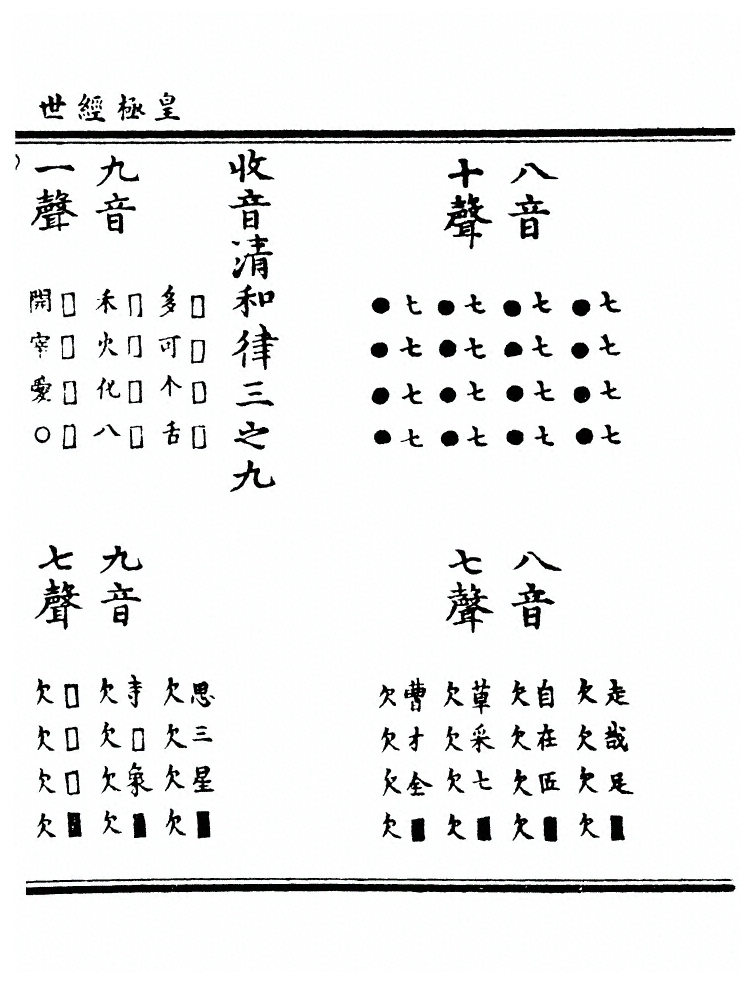 皇極經世
八音
十聲
七七七七
●●●●
七七七七
●●●●
七七七七
●●●●
七七七七
●●●●
八音
七聲
走哉足■
欠欠欠欠
自在匠■
欠欠欠欠
草采七■
欠欠欠欠
曹才全■
欠欠欠欠
收音清和律三之九
九音
一聲
□□□□
多可个舌
□□□□
禾火化八
□□□□
開宰愛○
九音
七聲
思三星■
欠欠欠欠
寺□象■
欠欠欠欠
□□□■
欠欠欠欠